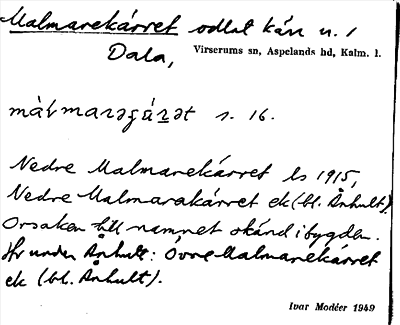 Malmarekärret odlat kärr u. /
Dala, Virserums sn, Aspelands hd, Kalm. l.
s. 16.
Nedre Malmarekärret ls 1915,
Nedre Malmarakärret ek (bl. Ånhult).
Orsaken till namnet okänd i bygden.
Jfr under Ånhult: Övre Malmarekärret
ek (bl. Ånhult).
Ivar Modéer 1949